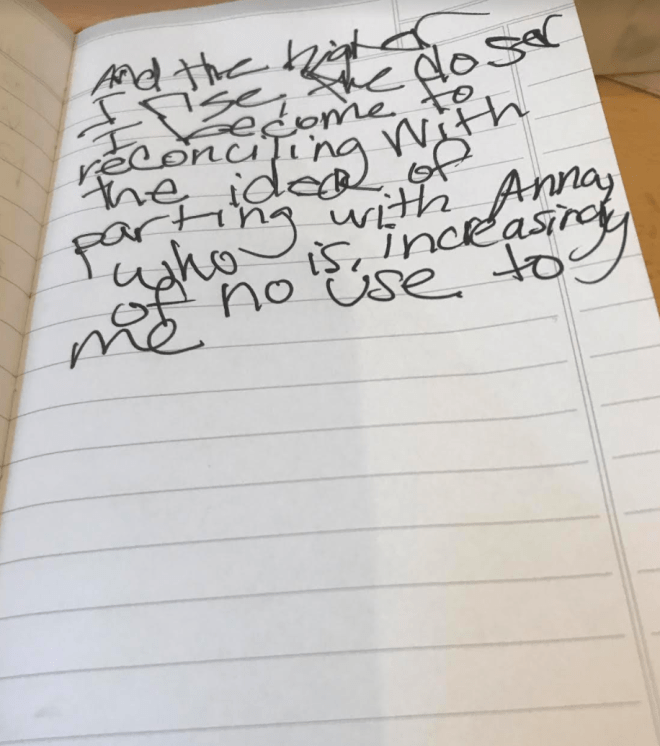 And the higher
I rise, the closer
I become to
reconciling with
the idea of
parting with Anna,
who is, increasingly
of no use to
me